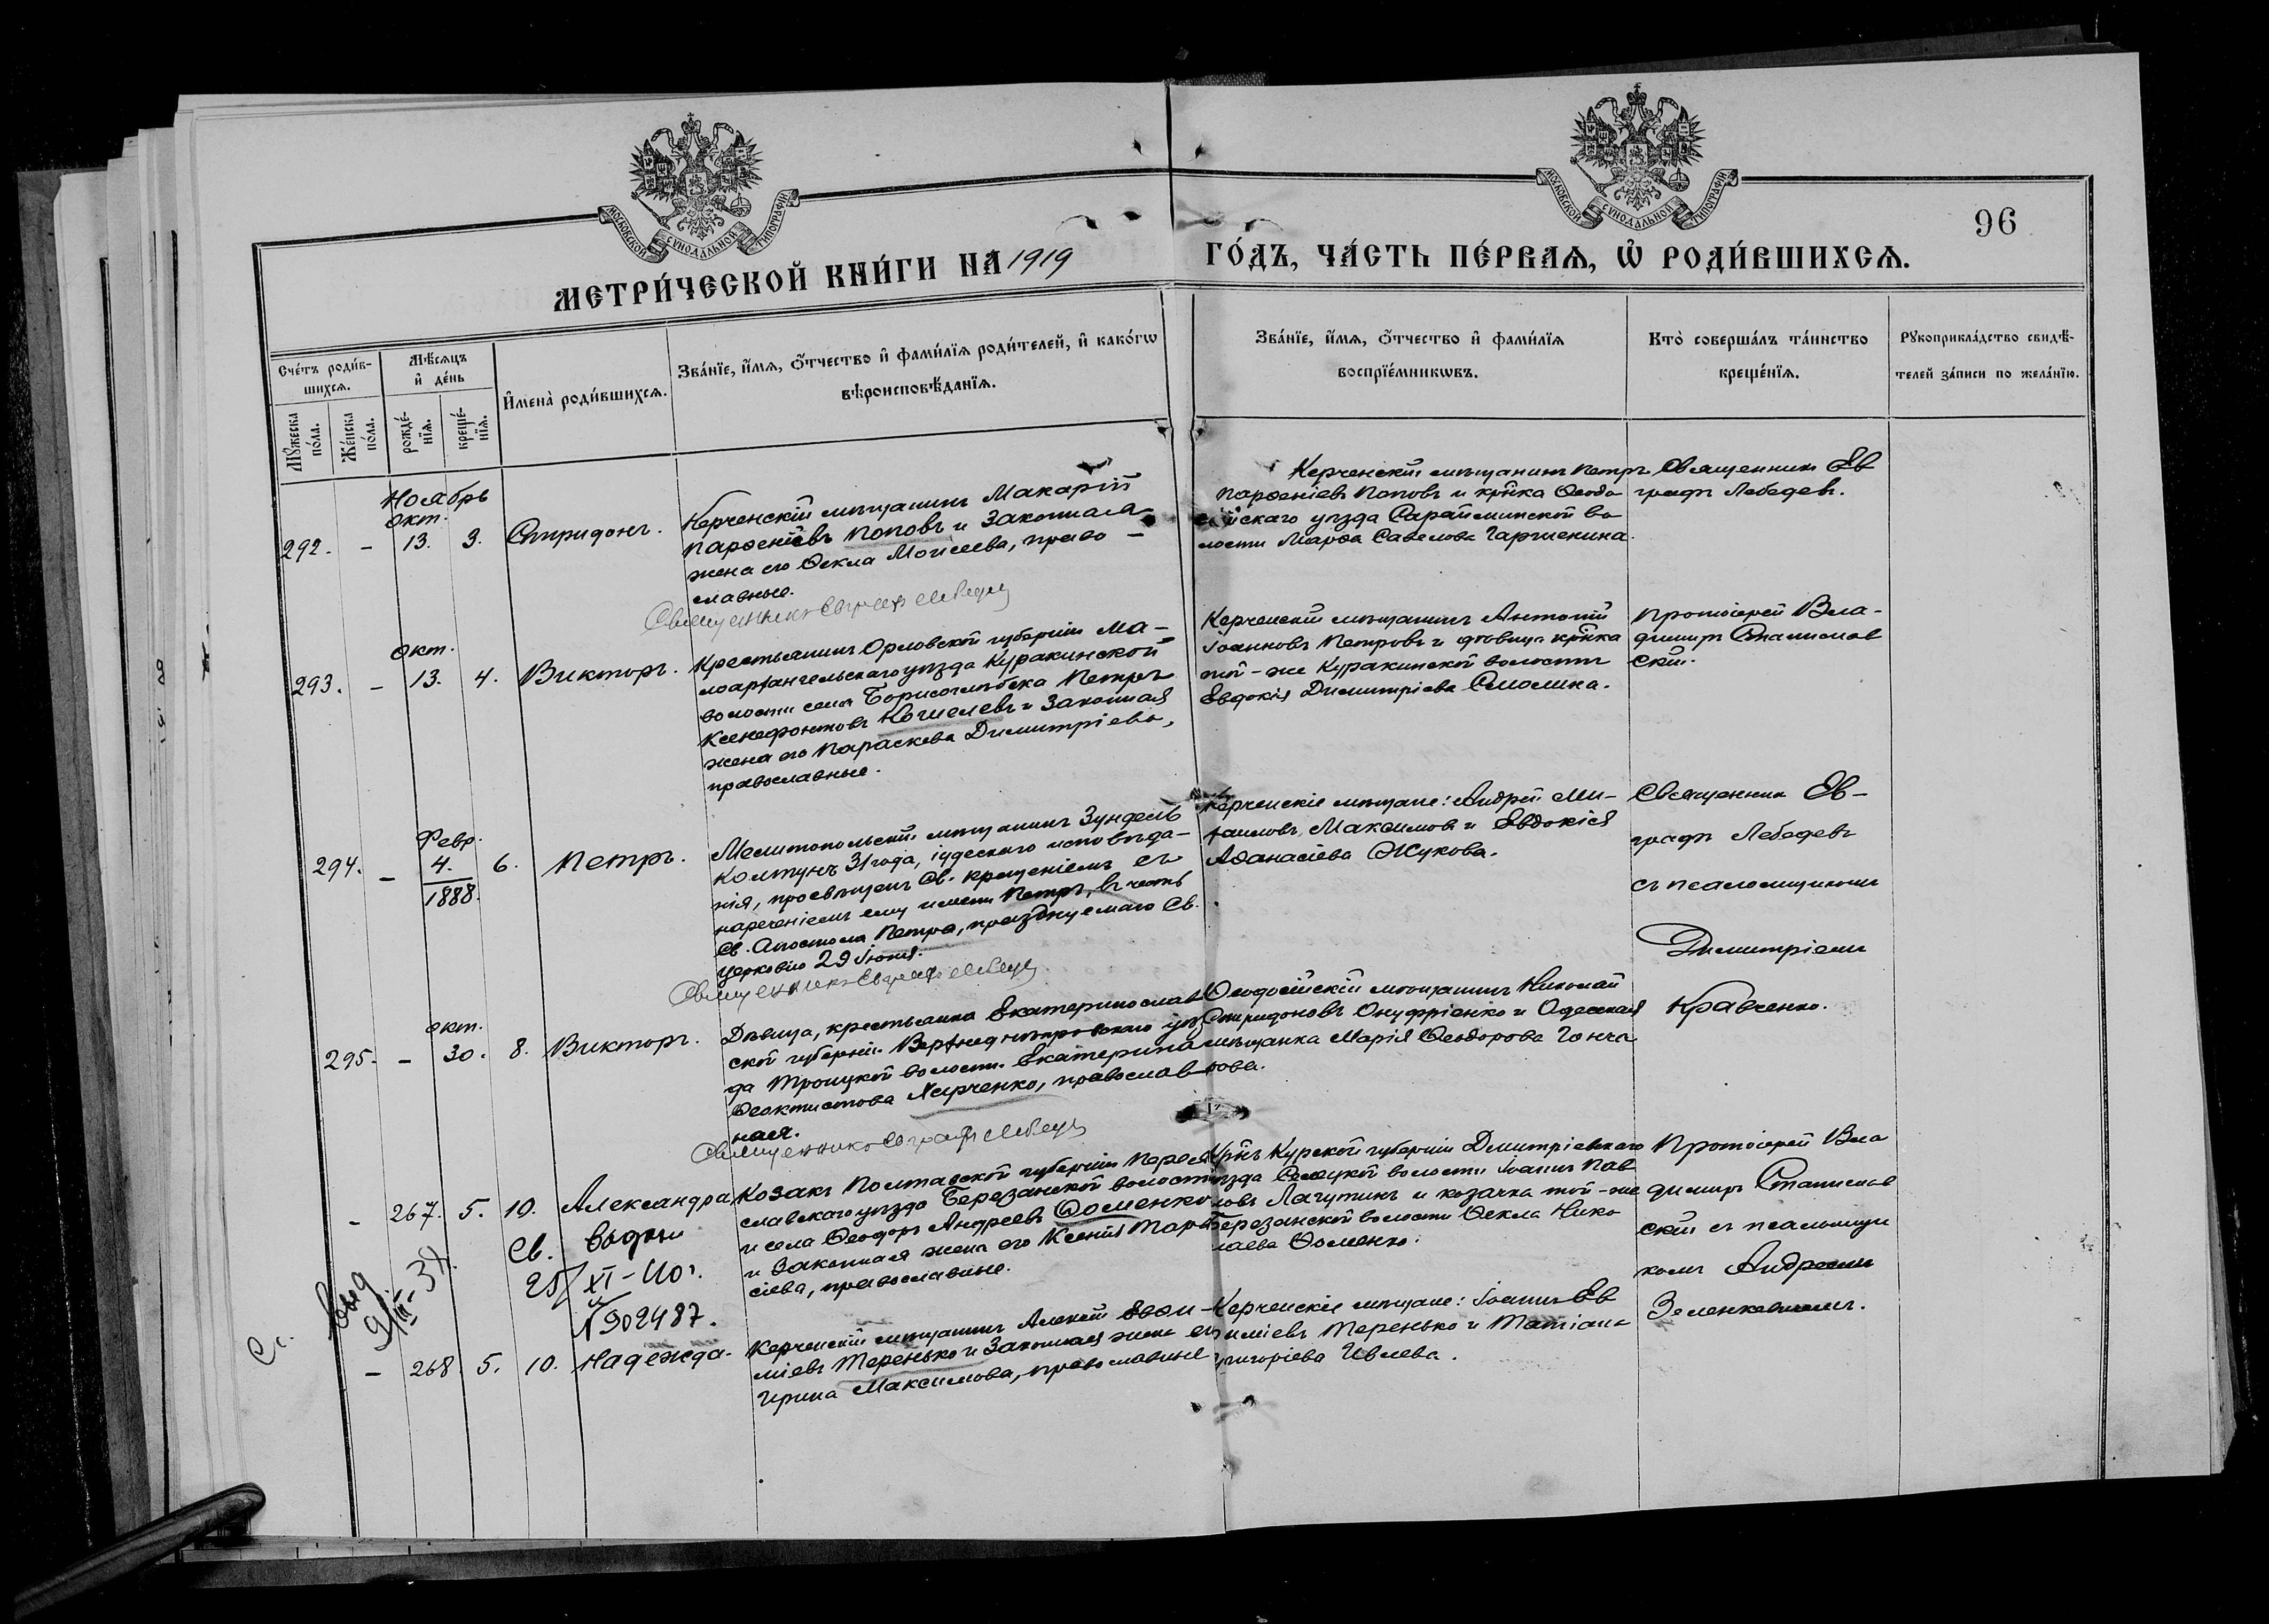 МОСКОВСКОЙ СѴНОДАЛЬНОЙ ТИПОГРАФІИ
МОСКОВСКОЙ СѴНОДАЛЬНОЙ ТИПОГРАФІИ
96
МЕТРИ́ЧЕСКОЙ КНИ́ГИ НА 1919
ГО́ДЪ, ЧА́СТЬ ПЕ́РВАЯ, Ѡ РОДИ́ВШИХСЯ.
Сче́тъ роди́в-
шихся.
Мѣ́сяцъ
и де́нь
Мꙋ́жеска
по́ла.
Же́нска
по́ла.
рожде́-
нїя.
креще́-
нїя.
И҆мена̀ роди́вшихся.
Зва́нїе, и҆́мя, ѻ҆́тчество и҆ фами́лїя роди́телей, и҆ како́гѡ
вѣроисповѣ́данїя.
Зва́нїе, и҆́мя, ѻ҆́тчество и҆ фами́лїя
воспрїе́мникѡвъ.
Кто̀ соверша́лъ та́инство
креще́нїя.
Рꙋкоприкла́дство свидѣ́-
телей за́писи по жела́нїю.
Ноябрь
окт.
292. - 13. 3. Спиридонъ.
Керченскій мѣщанинъ Макарій
Парѳеніевъ Поповъ и законная
жена его Ѳекла Моисеева, право-
славные.
Священникъ Евграфъ Лебедев
Керченскій мѣщанинъ Петръ
Парѳеніевъ Поповъ и крѣнка Ѳеодо
сійскаго уѣзда Сарайминской во
лости Марѳа Савелова
Священник Ев
графъ Лебедевъ.
окт.
293. - 13. 4. Викторъ.
Крестьянинъ Орловской губерніи Ма-
лоархангельскаго уѣзда Куракинской
волости села Борисоглѣбска Петръ
Ксенофонтовъ Кошелевъ и законная
жена его Параскева Димитріева,
православные.
Керченскій мѣщанинъ Антоній
Іоанновъ Петровъ и дѣвица крѣнка
той-же Куракинской волости
Евдокія Димитріева Смолина.
Протоіерей Вла-
димиръ Станислав
скій.
Февр.
294. - 4. 6. Петръ.
1888.
Мелитопольскій мѣщанинъ Зундель
Колтунъ 31 года, іудескаго исповѣда-
нія, просвѣщенъ Св. крещеніемъ съ
нареченіемъ ему имени Петръ, въ честь
Св. Апостола Петра, празднуемаго Св.
Церковію 29 Іюня.
Священникъ Евграфъ Лебедев
Керченскіе мѣщане: Андрей Ми-
хаиловъ Максимовъ и Евдокія
Аѳанасіева Жукова.
Священник Ев-
графъ Лебедевъ
съ псаломщикомъ
Димитріемъ
Кравченко.
окт.
295. - 30. 8. Викторъ.
Дѣвица, крестьянка Екатеринослав
ской губерніи Верхнеднѣпровскаго уѣз
да Троицкой волости Екатерина
Ѳеоктистова Харченко, православ
ная.
Священникъ Евграфъ Лебедев
Ѳеодосійскій мѣщанинъ Николай
Спиридоновъ Онуфріенко и Одесская
мѣщанка Марія Ѳеодорова Гонча
рова.
- 267. 5. 10. Александра
Козакъ Полтавской губерніи Перея
славскаго уѣзда Березанской волости
и села Ѳеодоръ Андреевъ Ѳоменко
и законная жена его Ксенія Тара
сіева, православные.
Крѣнъ Курской губерніи Димитріевскаго
уѣзда Селецкой волости Іоаннъ Пав
ловъ Лагутинъ и козачка той-же
Березанской волости Ѳекла Нико
лаева Ѳоменко.
Протоіерей Вла
димиръ Станислав
скій съ псаломщи
комъ Андреемъ
Зеленкевичемъ.
Св. выдан
25/XI-40г.
№ 902487.
Св. выд
9/III-37.
- 268. 5. 10. Надежда.
Керченскій мѣщанинъ Алексій Евѳи-
міевъ Теренько и законная жена его
Ирина Максимова, православные
Керченскіе мѣщане: Іоаннъ Ев
ѳиміевъ Теренько и Татіана
Григоріева Ивлева.